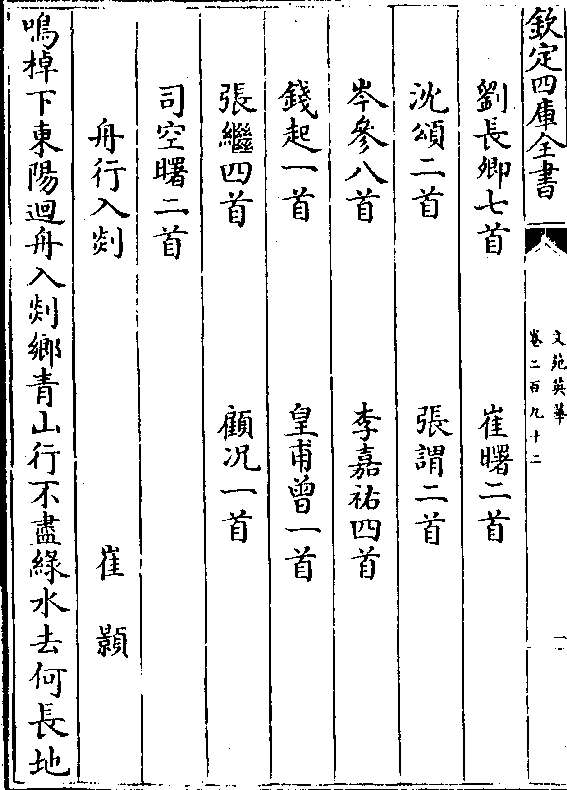 欽定四庫全書
文苑英華
卷二百九十二
一
劉長卿七首 崔曙二首
沈頌二首 張謂二首
岑參八首 李嘉祐四首
錢起一首 皇甫曾一首
張繼四首 顧况一首
司空曙二首
舟行入剡 崔顥
鳴棹下東陽迴舟入剡鄉青山行不盡綠水去何長地